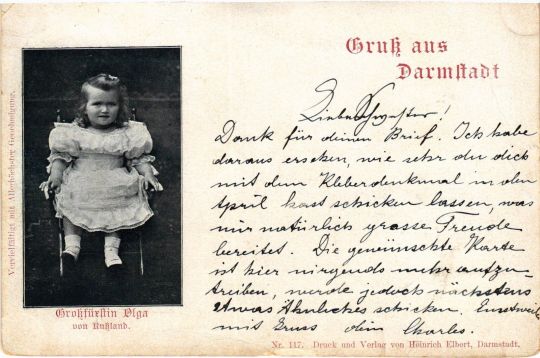 Gruß aus
Darmstadt
Liebe Schwester!
Dank für deinen Brief. Ich habe
daraus ersehen, wie sehr du dich
mit dem Kleberdenkmal in den
April hast schicken lassen, was
mir natürlich grosse Freude
bereitet. Die gewünschte Karte
ist hier nirgends mehr aufzu-
treiben, werde jedoch nächstens
etwas Ähnliches schicken. Einstweilen
mit Gruss dein Charles.
Vervielfältigt mit Allerhöchster Genehmigung.
Großfürstin Olga
von Rußland.
Nr. 117. Druck und Verlag von Heinrich Elbert, Darmstadt.